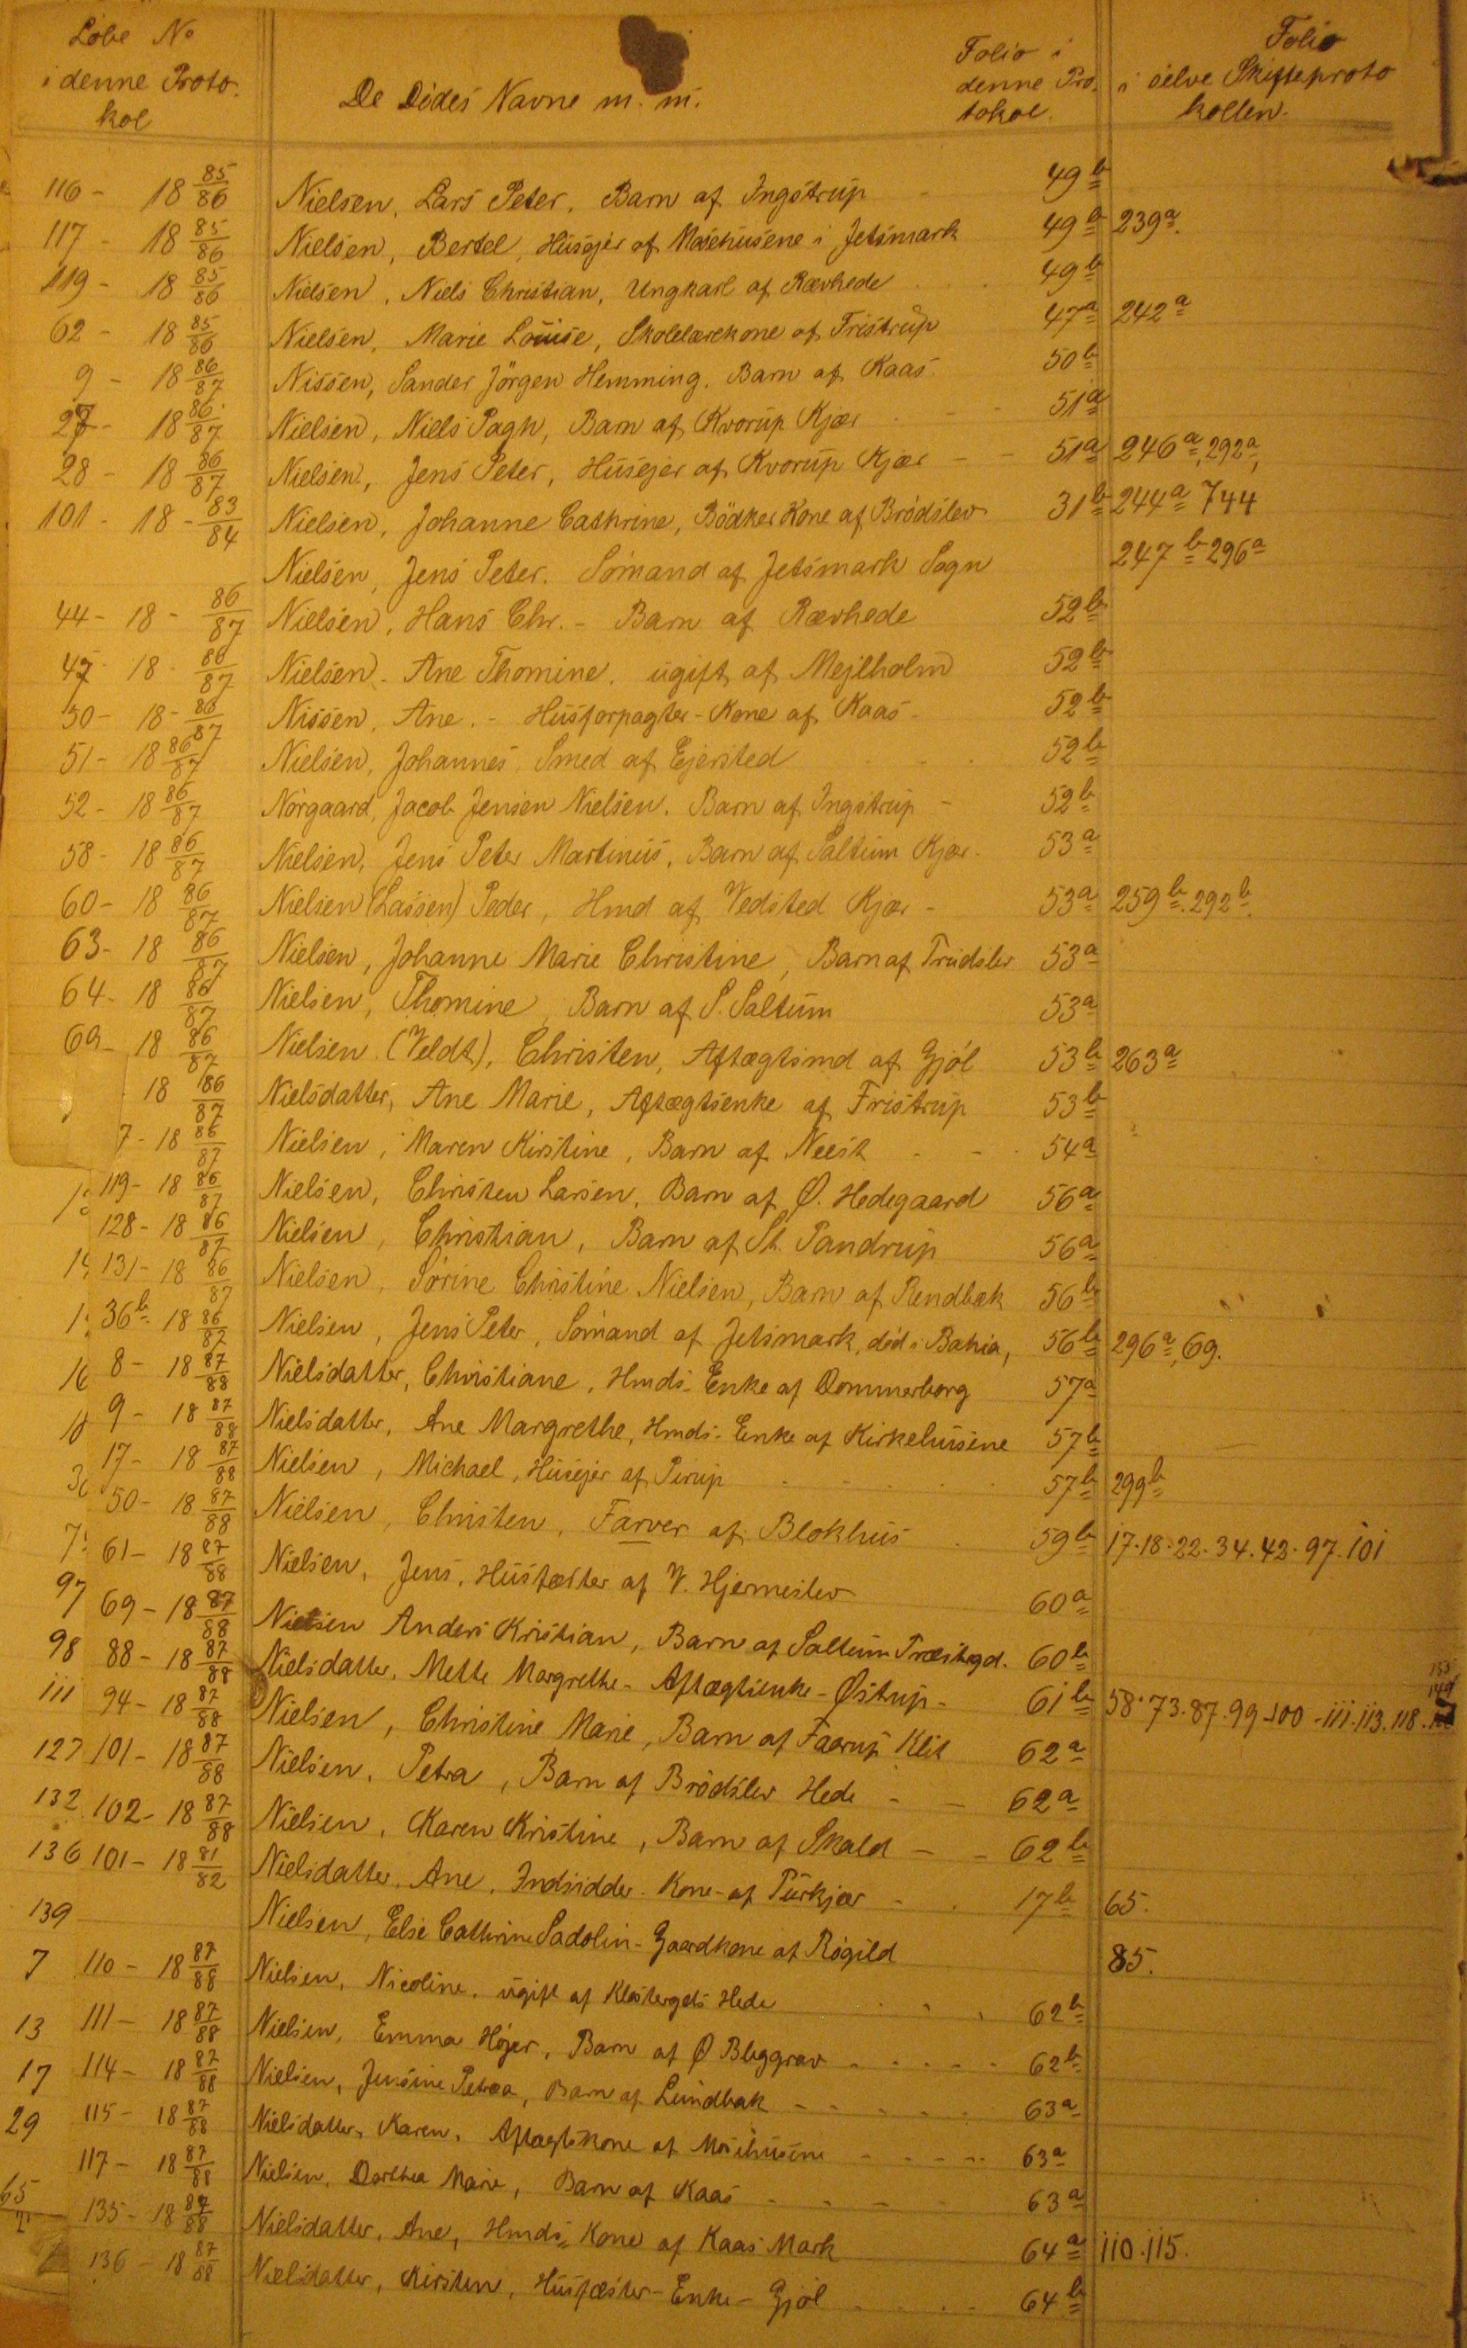 Løbe No i denne Proto. kol | De Dödes Navne m. m. | Folio i denne Pro. tokol. | Folio i selve Skifteproto kollen.
116 - 18 85/86 Nielsen, Lars Peter, Barn af Ingstrup - 49 b
117 - 18 85/86 Nielsen, Bertel, Husejer af Mosehusene i Jetsmark 49 b 239 a.
119 - 18 85/86 Nielsen, Niels Christian, Ungkarl af Rævhede 49 b
62 - 18 85/86 Nielsen, Marie Louise, Skolelærekone af Fristrup 47 a 242 a
9 - 18 86/87 Nissen, Sander Jörgen Hemming, Barn af Kaas 50 b
27 - 18 86/87 Nielsen, Niels Pagh, Barn af Kvorup Kjær - - 51 a
28 - 18 86/87 Nielsen, Jens Peter, Husejer af Kvorup Kjær - - 51 a 246 a, 292 a,
101 - 18 - 83/84 Nielsen, Johanne Cathrine, Bödker Kone af Brödslev 31 b 244 a 744
Nielsen, Jens Peter. Sömand af Jetsmark Sogn 247 b 296 a
44 - 18 - 86/87 Nielsen, Hans Chr. - Barn af Rævhede 52 b
47 - 18 - 86/87 Nielsen - Ane Thomine, ugift af Mejlholm 52 b
50 - 18 - 86/87 Nissen, Ane. - Husforpagter - Kone af Kaas 52 b
51 - 18 86/87 Nielsen, Johannes, Smed af Ejersted 52 b
52 - 18 86/87 Nörgaard, Jacob Jensen Nielsen. Barn af Ingstrup - 52 b
58 - 18 86/87 Nielsen, Jens Peter Martinus, Barn af Saltum Kjær - 53 a
60 - 18 86/87 Nielsen (Lassen) Peder, Hmd af Vedsted Kjær - 53 a 259 b. 292 b.
63 - 18 86/87 Nielsen, Johanne Marie Christine, Barn af Trudslev 53 a
64 - 18 86/87 Nielsen, Thomine, Barn af S. Saltum 53 a
69 - 18 86/87 Nielsen (Veldt), Christen, Aftægtsmd af Gjöl 53 b 263 a
18 86/87 Nielsdatter, Ane Marie, Aftægtsenke af Fristrup 53 b
7 - 18 86/87 Nielsen, Maren Kirstine, Barn af Neest - - 54 a
119 - 18 86/87 Nielsen, Christen Larsen, Barn af Ø. Hedegaard 56 a
128 - 18 86/87 Nielsen, Christian, Barn af St. Pandrup 56 a
131 - 18 86/87 Nielsen, Sörine Christine Nielsen, Barn af Rendbæk 56 b
36 b - 18 86/87 Nielsen, Jens Peter, Sömand af Jetsmark, död i Bahia, 56 b 296 a, 69.
16 8 - 18 87/88 Nielsdatter, Christiane, Hmds. Enke af Dommerborg 57 a
9 - 18 87/88 Nielsdatter, Ane Margrethe, Hmds. Enke af Kirkehusene 57 b
17 - 18 87/88 Nielsen, Michael, Husejer af Pirup 57 b 299 b
50 - 18 87/88 Nielsen, Christen, Farver af Blokhus 59 b 17. 18. 22. 34. 42. 97. 101
61 - 18 87/88 Nielsen, Jens, Husfæster af V. Hjermislev 60 a
97 69 - 18 87/88 Nielsen Anders Kristian, Barn af Saltum Præstegd. 60 b
98 88 - 18 87/88 Nielsdatter, Mette Margrethe - Aftægtsenke - Østrup - 61 b 58. 73. 87. 99. 100 - 111. 113. 118.
111 94 - 18 87/88 Nielsen, Christine Marie, Barn af Faarup Klit 62 a
127 101 - 18 87/88 Nielsen, Petra, Barn af Brödslev Hede - - 62 a
132 102 - 18 87/88 Nielsen, Karen Kristine, Barn af Skald - - 62 b
136 101 - 18 81/82 Nielsdatter, Ane, Indsidder - Kone - af Purkjær - 17 b 65.
139 Nielsen, Else Cathrine Sadolin - Gaardkone af Rögild 85.
7 110 - 18 87/88 Nielsen, Nicoline, ugift af Klostergds Hede 62 b
13 111 - 18 87/88 Nielsen, Emma Höjer, Barn af Ø Bleggrav 62 b
17 114 - 18 87/88 Nielsen, Jensine Petrea, Barn af Lundbak 63 a
29 115 - 18 87/88 Nielsdatter, Karen, Aftægtskone af Mosehusene 63 a
117 - 18 87/88 Nielsen, Dorthea Marie, Barn af Kaas 63 a
65 135 - 18 87/88 Nielsdatter, Ane, Hmds Kone af Kaas Mark 64 a 110. 115.
136 - 18 87/88 Nielsdatter, Kirsten, Husfæster - Enke - Gjöl 64 b